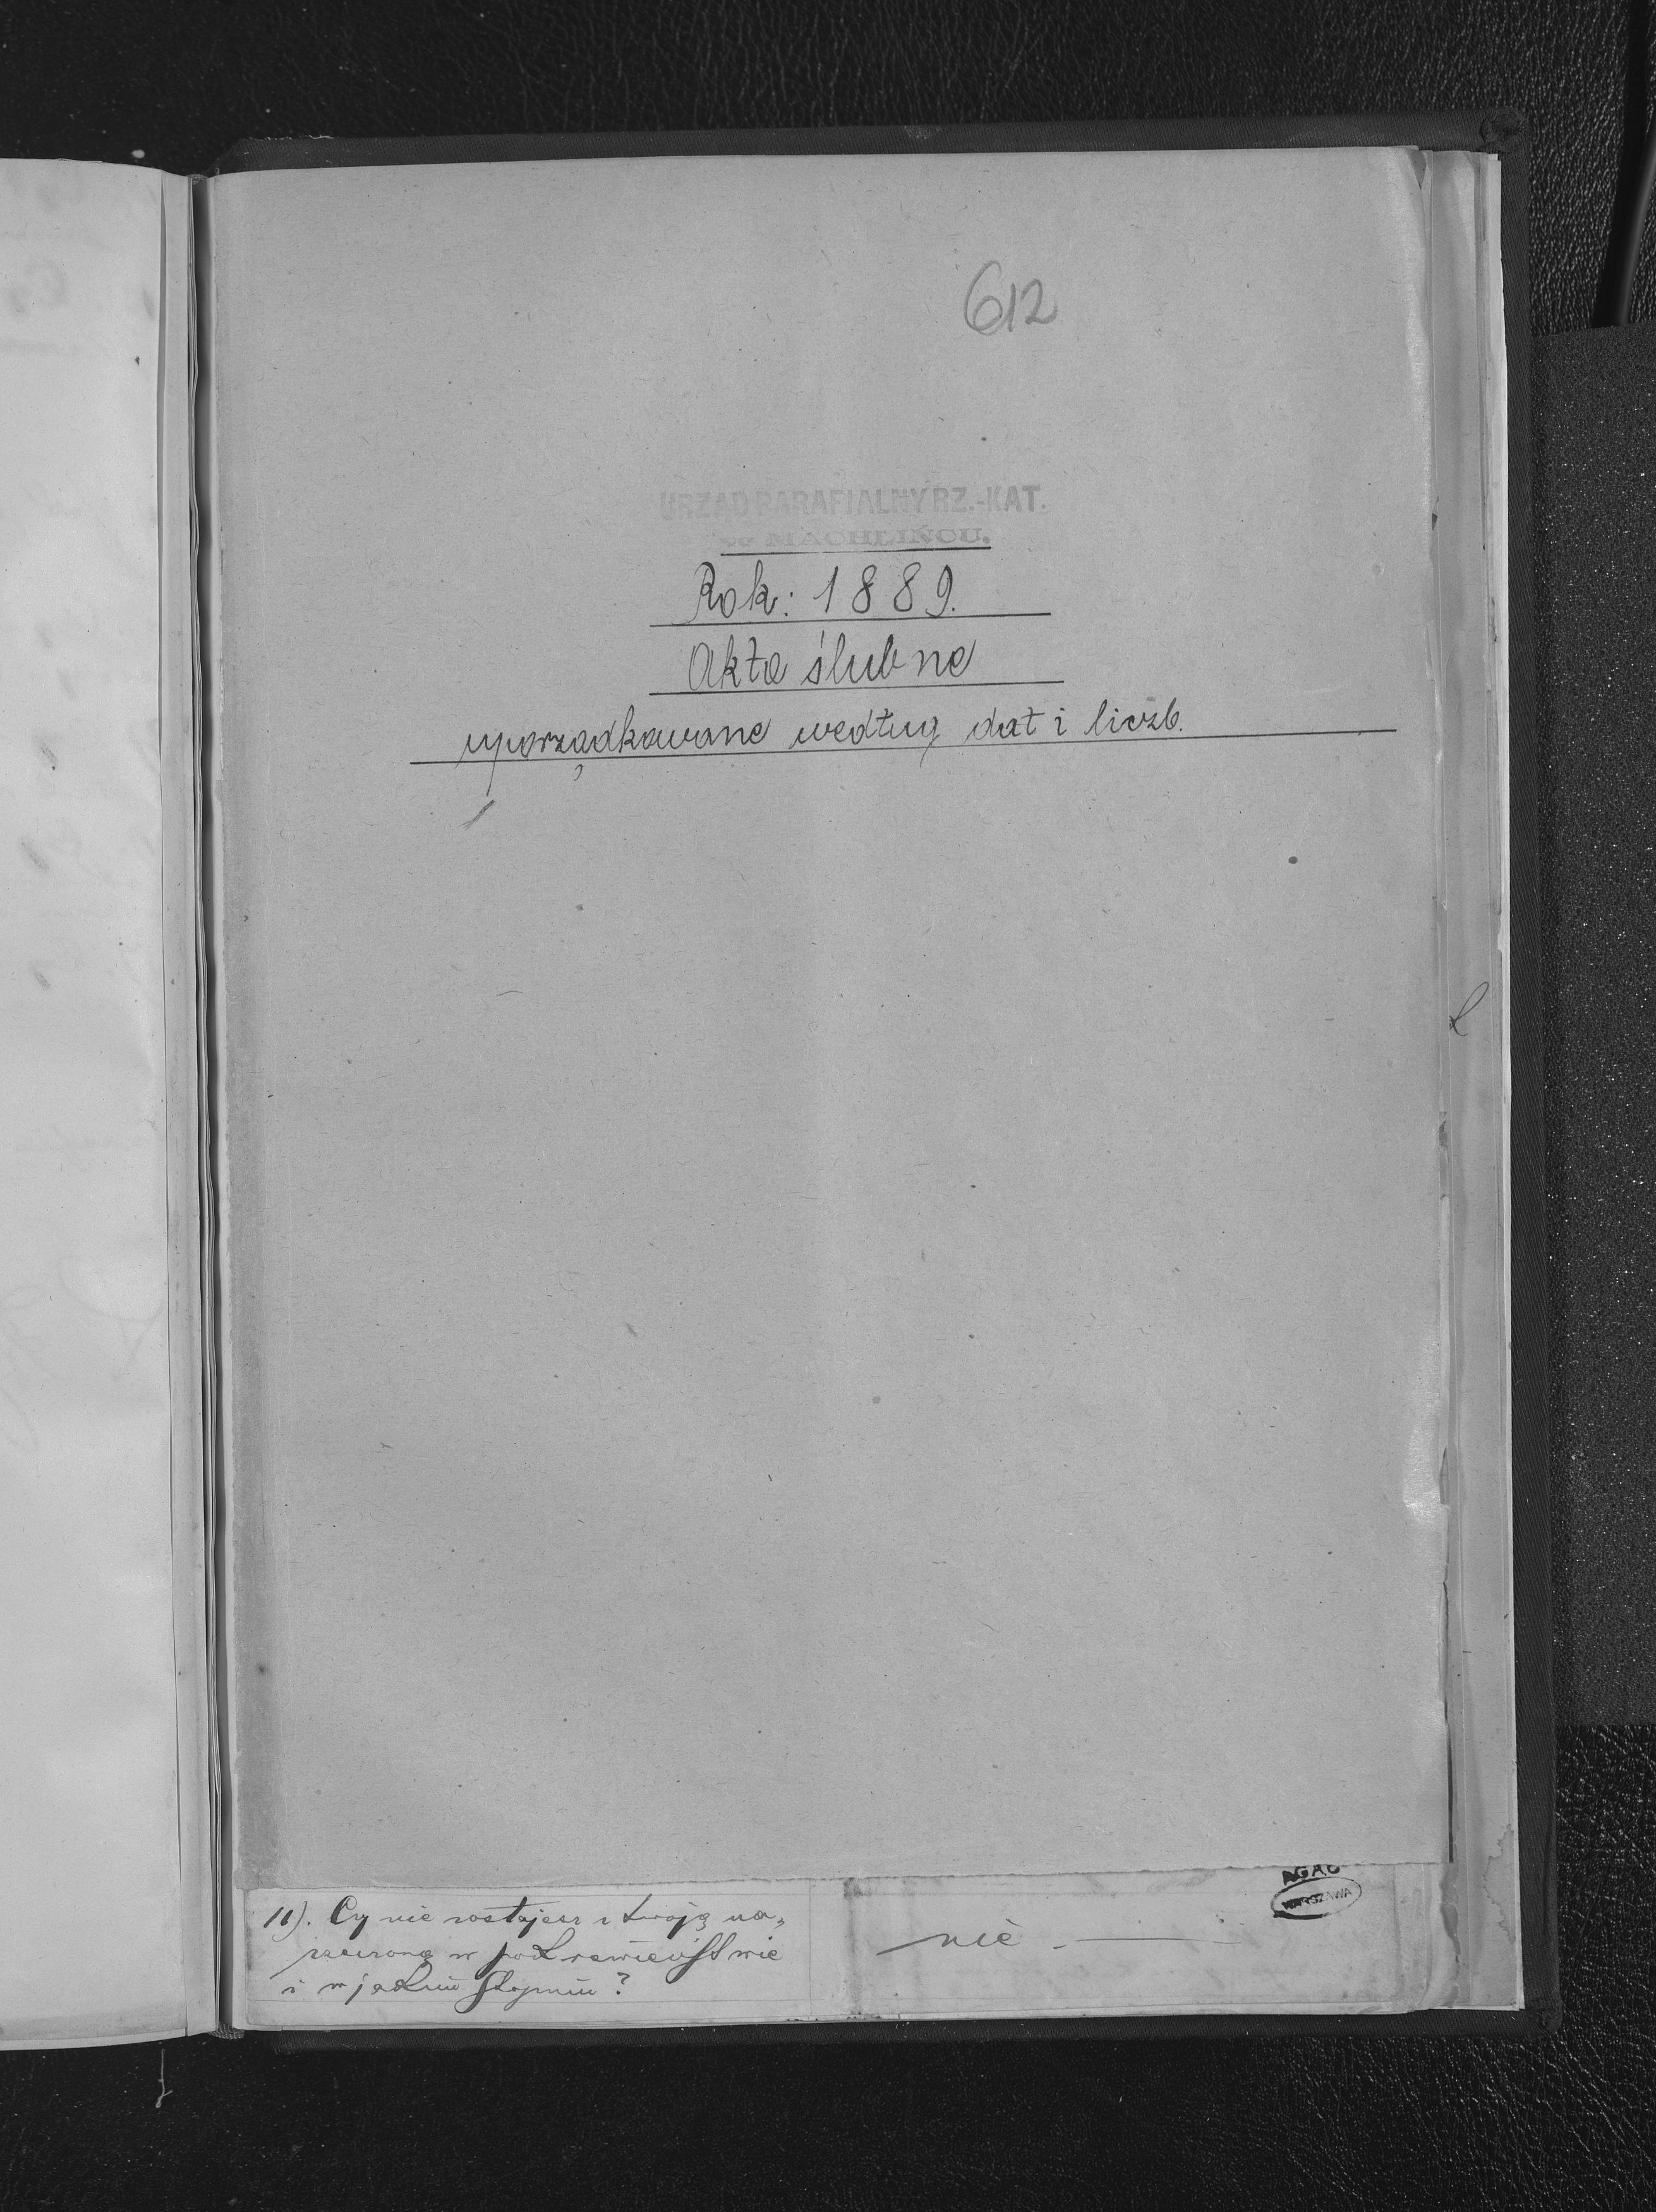 612
URZĄD PARAFIALNY RZ.-KAT.
w MACHLIŃCU.
Rok: 1889.
Akta ślubne
uporządkowane według dat i liczb.
AGAD
WARSZAWA
11). Czy nie zostajesz z twoją na„
rzeczoną w pokrewieństwie
i w jakim stopniu?
nie